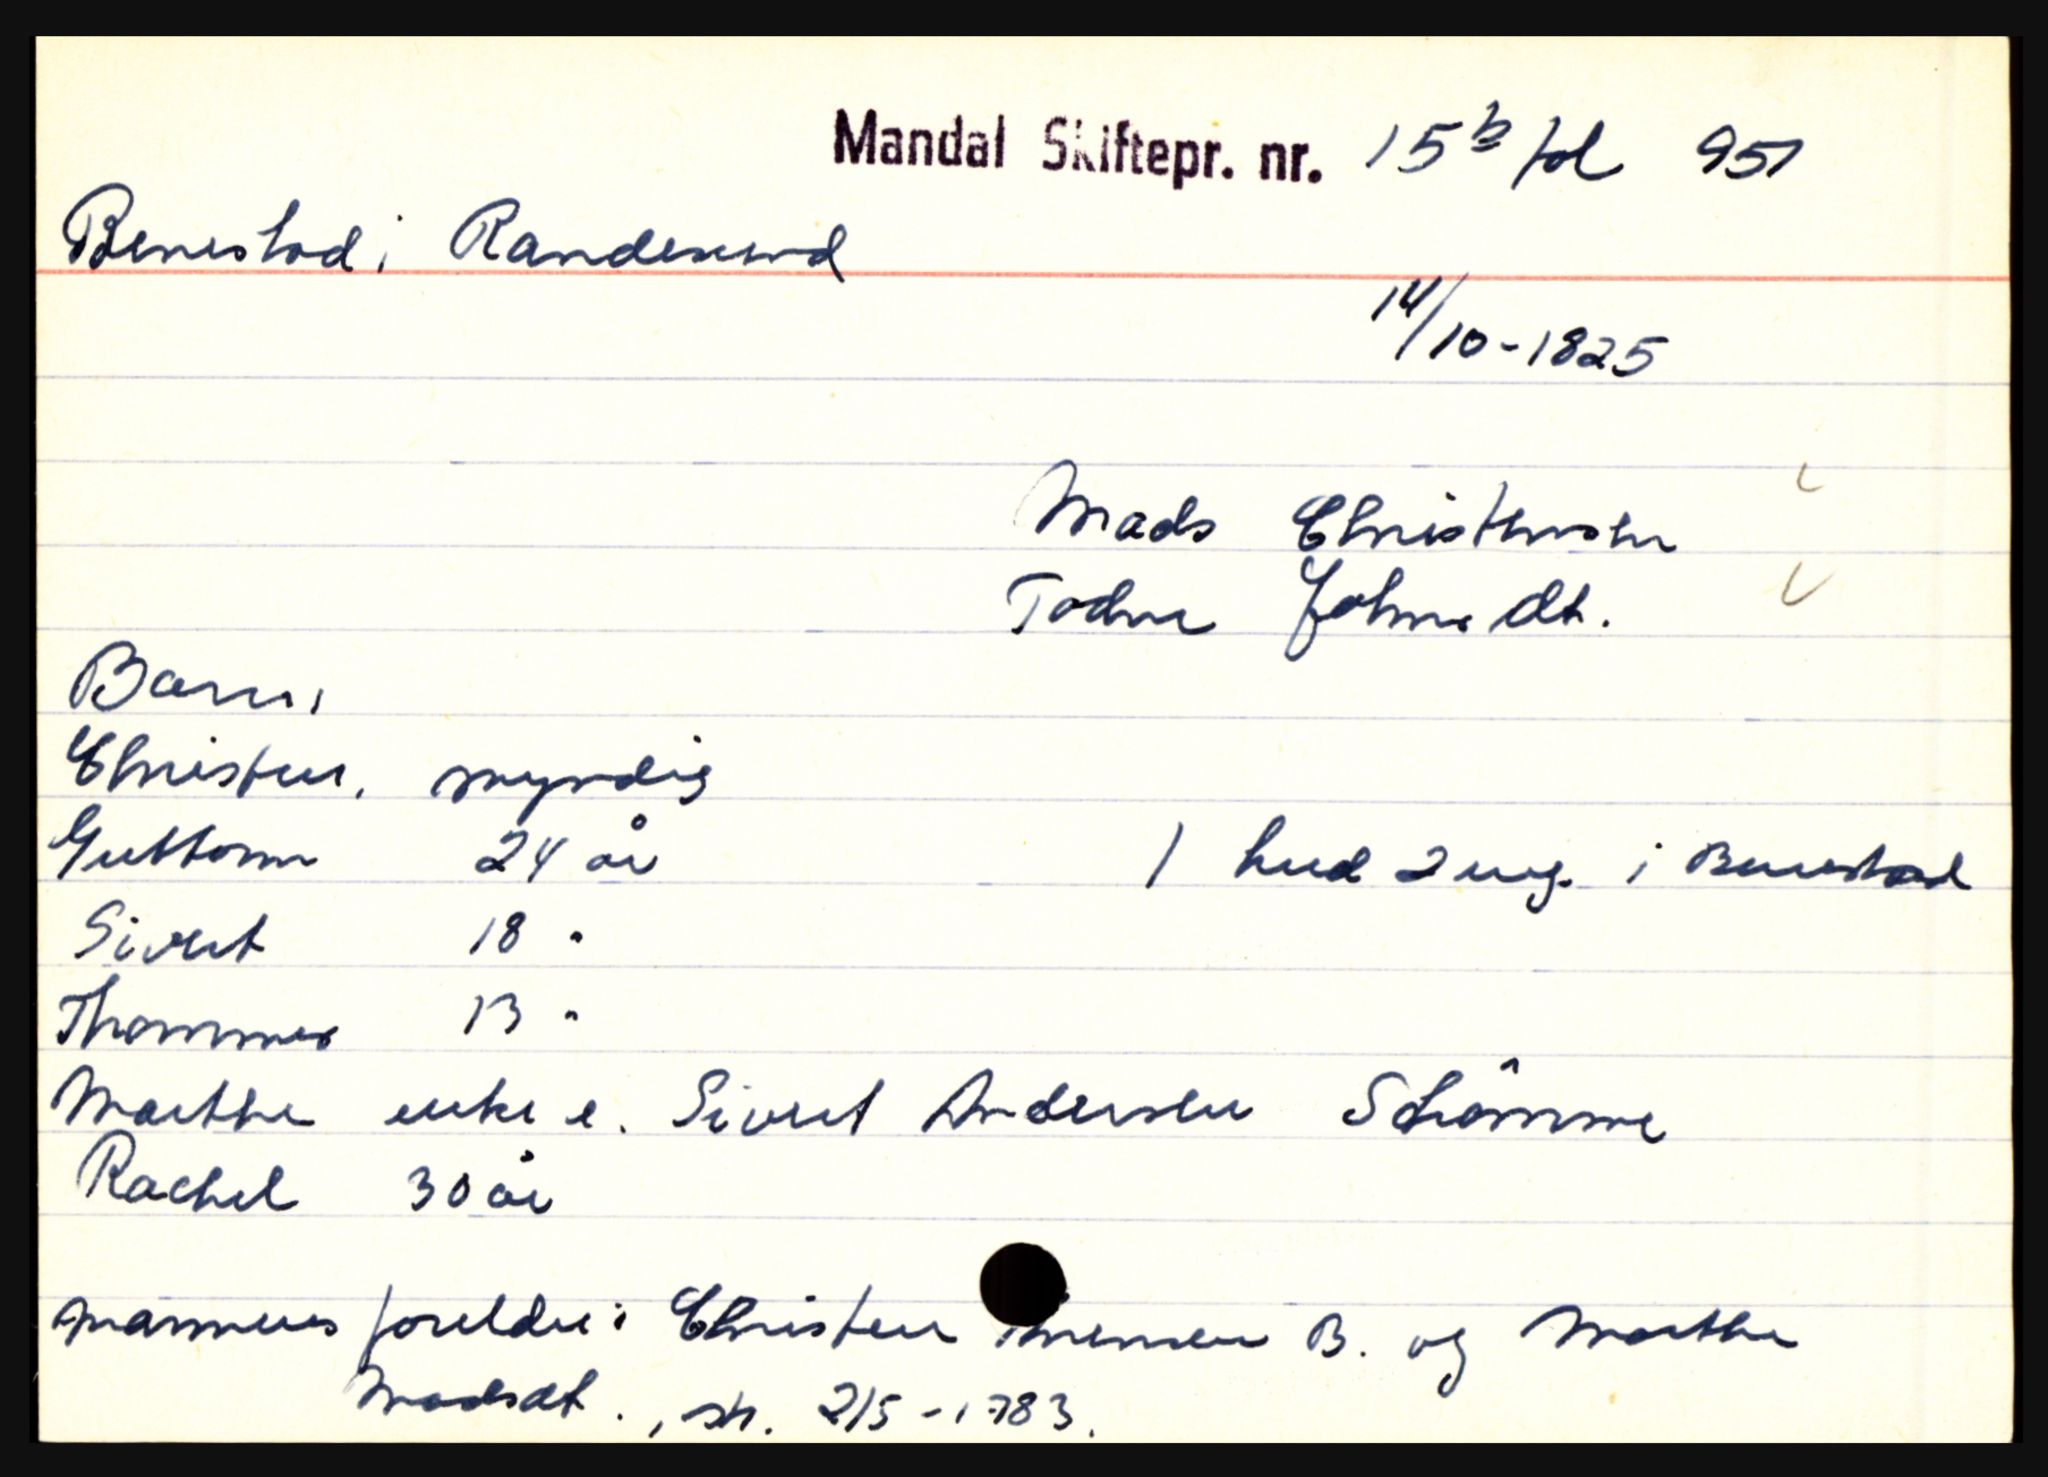 Mandal Skiftepr. nr. 15b fol 951
Benestad i Randesund
14/10-1825
Mads Christensen
Todne Johnsdt.
Barn:
Christen, myndig
Guttorm 24 år
1 hud 2 eng. i Benestad
Sivert 18 "
Thommes 13 "
Marthe enke e. Sivert Andersen Strømme
Rachel 30 år
mannens foreldre: Christen B. og Marthe
Madsdt., sk. 2/5-1783.